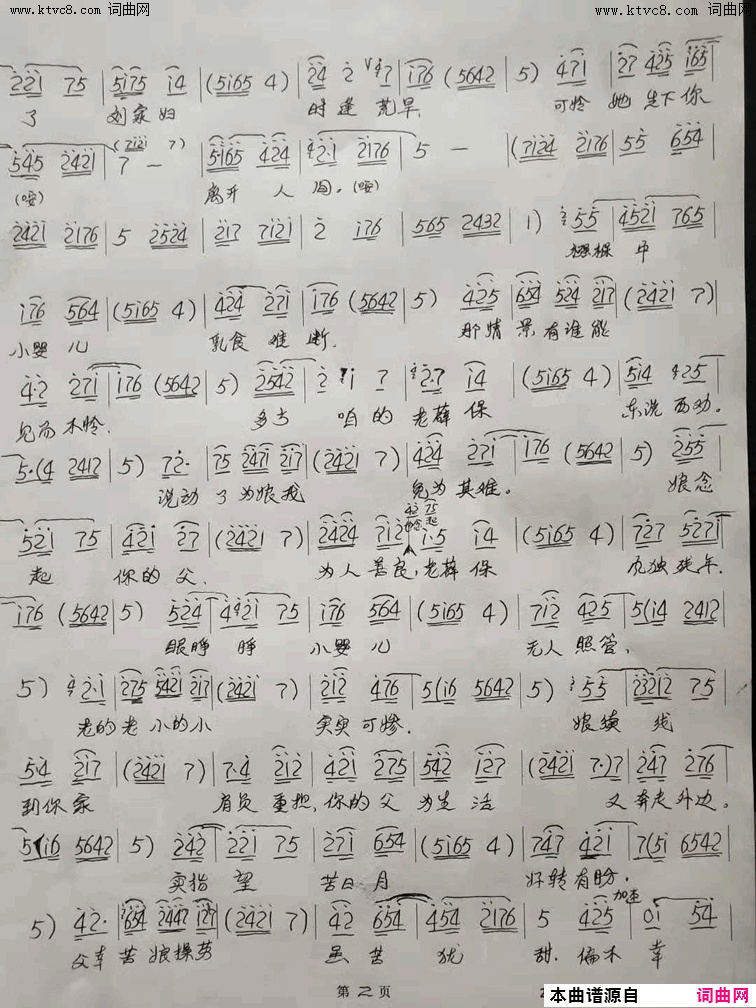 www.ktvc8.com 词曲网 www.ktvc8.com 词曲网
2 2 1 7 5 | 5 1 7 5 1 4 | (5 1 6 5 4) | 2 4 2 4 7 | 1 7 6 (5 6 4 2 | 5) 4 7 1 | 2 7 4 2 5 1 6 5
了 刘家妇 时逢荒旱, 可怜她生下你
5 4 5 2 4 2 1 | 7 — | 5·1 6 5 4 2 4 | 2·1 2 1 7 6 | 5 — | (7 1 2 4 2 1 7 6 | 5 5 6 5 4 |
(哎) 离开人间,(哎)
2 4 2 1 2 1 7 6 | 5 2 5 2 4 | 2 1 7 7 1 2 1 | 2 1 7 6 | 5 6 5 2 4 3 2 | 1) 5 5 | 4 5 2 1 7 6 5
襁褓中
1 7 6 5 6 4 | (5 1 6 5 4) | 4 2 4 2 7 1 | 1 7 6 (5 6 4 2 | 5) 4 2 5 | 6 5 4 5 2 4 2 1 7 | (2 4 2 1 7) |
小婴儿 乳食难断. 那情景有谁能
4·2 2 7 1 | 1 7 6 (5 6 4 2 | 5) 2 5 4 2 | 2 1 7 | 2·7 1 4 | (5 1 6 5 4) | 5 1 4 2 5
见而不怜. 多亏咱的老薛保 东说西劝.
5·(4 2 4 1 2 | 5) 7 2· | 7 5 2 4 7 1 2 1 7 | (2 4 2 1 7) | 4 2 4 2 7 1 | 1 7 6 (5 6 4 2 | 5) 2 5 5 |
说动了为娘我 勉为其难. 娘念
5 2 1 7 5 | 4 2 1 2 7 | (2 4 2 1 7) | 2 4 2 4 7 1 2 | 1·5 1 4 | (5 1 6 5 4) | 7 2 7 5 2 7 1
起你的父. 为人善良,老薛保 孤独残年.
1 7 6 (5 6 4 2 | 5) 5 2 4 | 4 2 1 7 5 | 1 7 6 5 6 4 | (5 1 6 5 4) | 7 1 2 4 2 5 | 5 (1 4 2 4 1 2
眼睁睁小婴儿 无人照管,
5) 2·1 | 2 7 5 5 4 2 1 2 1 7 | (2 4 2 1 7) | 2 1 2 4 7 6 | 5 (1 6 5 6 4 2 | 5) 5 5 | 2 3 2 1 2 7 5
老的老小的小 实实可惨. 娘续线
5·4 2 1 7 | (2 4 2 1 7) | 7·4 2 1 2 | 4 2 1 2 7 5 | 5 4 2 1 2 7 | (2 4 2 1 7·) 7 | 2 4 7 2 7 6
到你家 肩负重担,你的父为生活 又奔走外边.
5 1 6 5 6 4 2 | 5) 2 4 2 | 2 2 1 7 5 | 2 7 1 6 5 4 | (5 1 6 5 4) | 7 4 7 4 2 1 | 7 (5 1 6 5 4 2
实指望苦日月 好转有盼.
加速
5) 4 2· | 6 5 4 2 4 4 7 1 2 7 | (2 4 2 1 7) | 4 2 6 5 4 | 4 5 4 2 1 7 6 | 5 4 2 5 | 0 1 5 4
父辛苦娘操劳 虽苦犹甜.偏不幸
第2页
本曲谱源自 词曲网